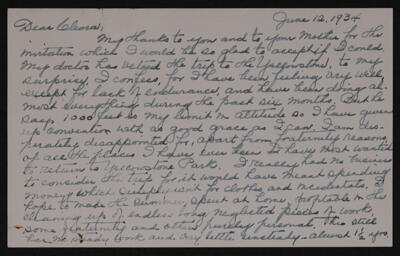 June 12, 1934
Dear Cleora;
My thanks to you and to your Mother for the
invitation which I would be so glad to accept if I could.
My doctor has vetoed the trip to the Yellowstone, to my
surprise, I confess, for I have been feeling very well,
except for lack of endurance, and have been doing al-
most everything during the past six months. But he
says 1000 feet is my limit in altitude so I have given
up convention with as good grace as I can. I am des-
perately disappointed for, apart from fraternity reasons
of all the places I have ever been to have most wanted
to return to Yellowstone Park. I really had no business
to consider the trip for it would have meant spending
money which simply isn't for clothes and incidentals. I
hope to make the summer, spent at home, profitable in the
cleaning up of endless long neglected pieces of work,
some fraternity and others purely personal. This still
has me work and very little unsteady - almost 1½ yrs.